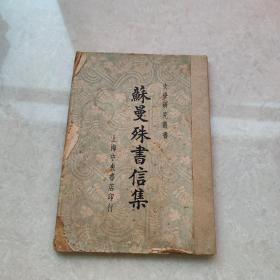 文學研究叢書
蘇曼殊書信集
上海中央書店印行